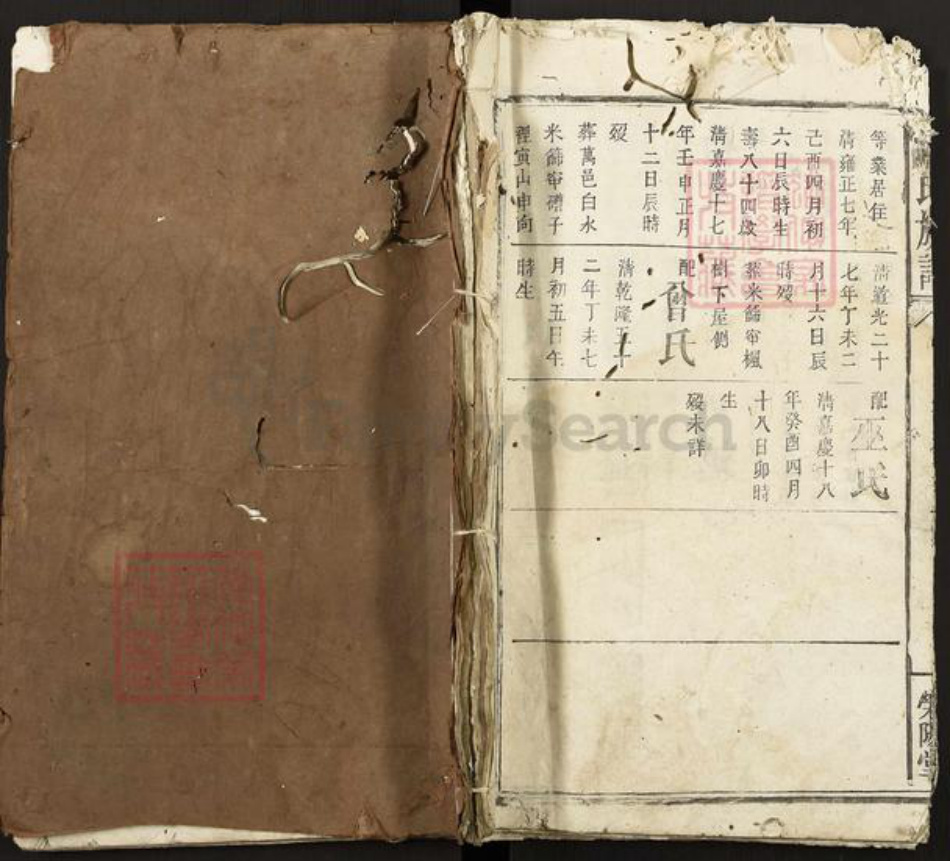 等業居住
清雍正七年
己酉四月初
六日辰時生
壽八十四歲
清嘉慶十七
年壬申正月
十二日辰時
歿
葬萬邑白水
米篩窂磜子
裡寅山申向
清道光二十
七年丁未二
月十六日辰
時歿
葬米篩窂楓
樹下屋側
配曾氏
清乾隆五十
二年丁未七
月初五日午
時生
配巫氏
清嘉慶十八
年癸酉四月
十八日卯時
生
歿未詳
氏族譜
榮陽堂
FamilySearch